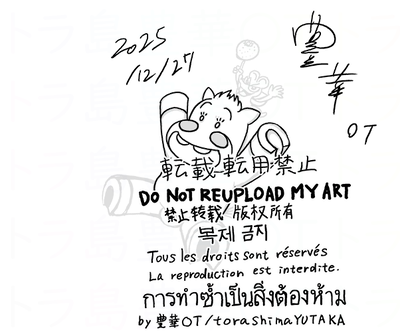 2025
/12/27
豊華
OT
転載・転用禁止
DO NOT REUPLOAD MY ART
禁止转载 版权所有
복제 금지
Tous les droits sont réservés
La reproduction est interdite.
การทำซ้ำเป็นสิ่งต้องห้าม
by 豊華OT/torashimaYUTAKA